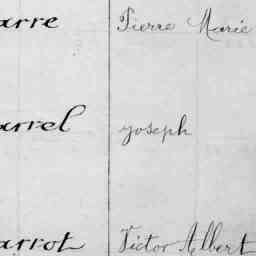 arre Pierre Marie
arrel Joseph
arrot Victor Albert